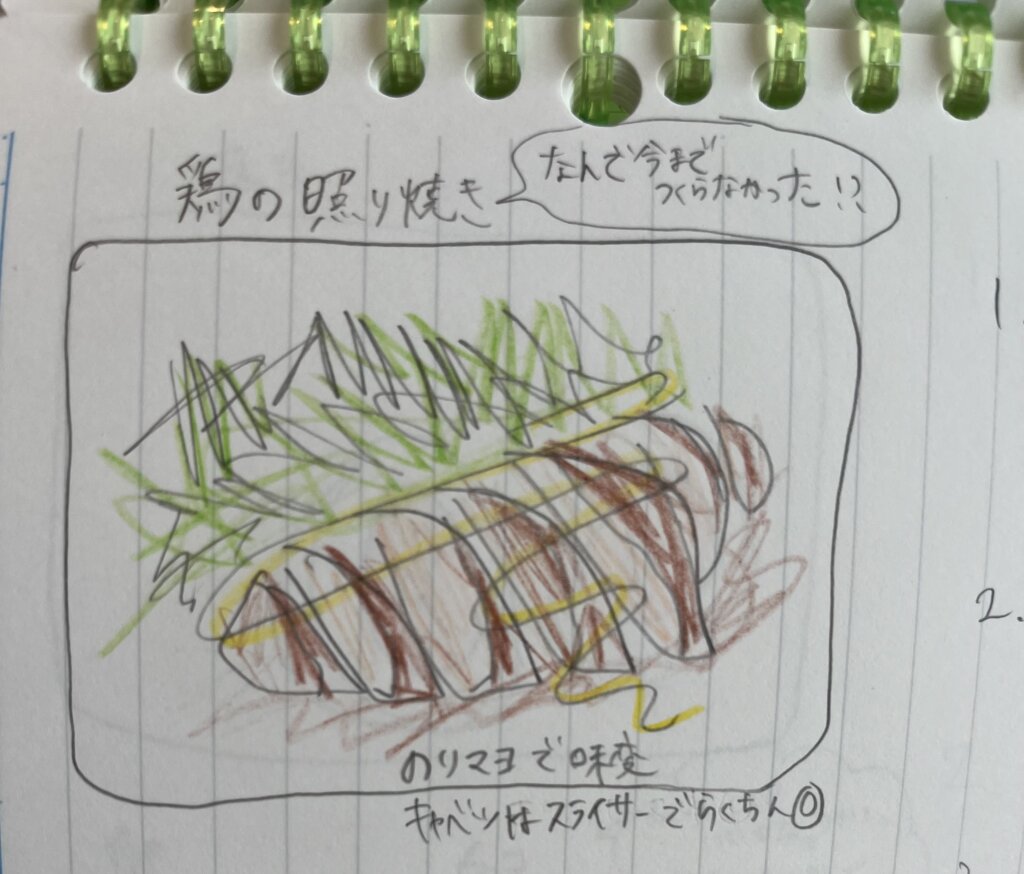 鶏の照り焼き
なんで今まで
つくらなかった!?
1.
2.
のりマヨで味変
キャベツはスライサーでらくちん◎